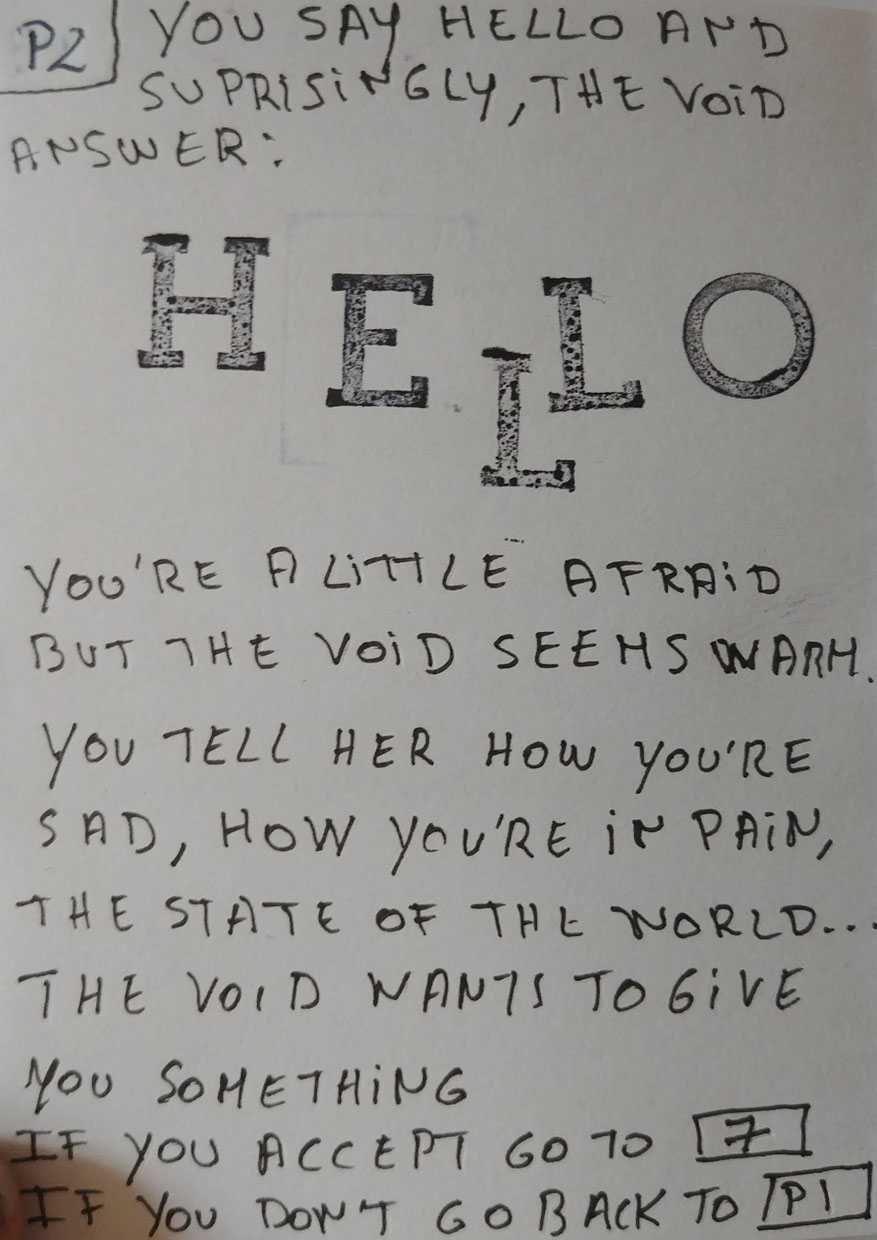 P2 YOU SAY HELLO AND
SUPRISINGLY, THE VOID
ANSWER:
HELLO
YOU'RE A LITTLE AFRAID
BUT THE VOID SEEMS WARM.
YOU TELL HER HOW YOU'RE
SAD, HOW YOU'RE IN PAIN,
THE STATE OF THE WORLD...
THE VOID WANTS TO GIVE
YOU SOMETHING
IF YOU ACCEPT GO TO 7
IF YOU DON'T GO BACK TO P1